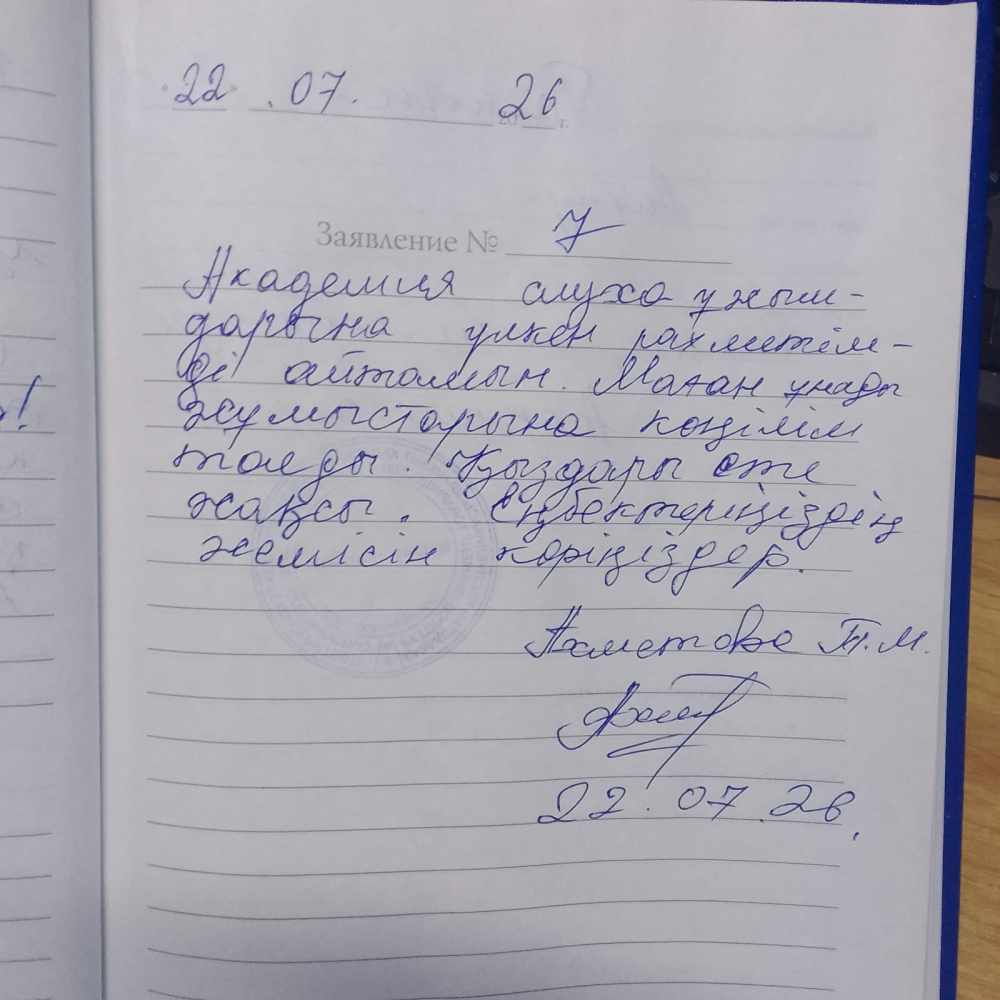 22 . 07. 2026 г.
Заявление № 7
Академия слуха ұжым-
дарына үлкен рахметім-
ді айтамын. Маған ұнады
жұмыстарына көңілім
толды. Қыздары өте
жақсы. Еңбектеріңіздің
жемісін көріңіздер.
Ахметова Т.М.
22.07.26